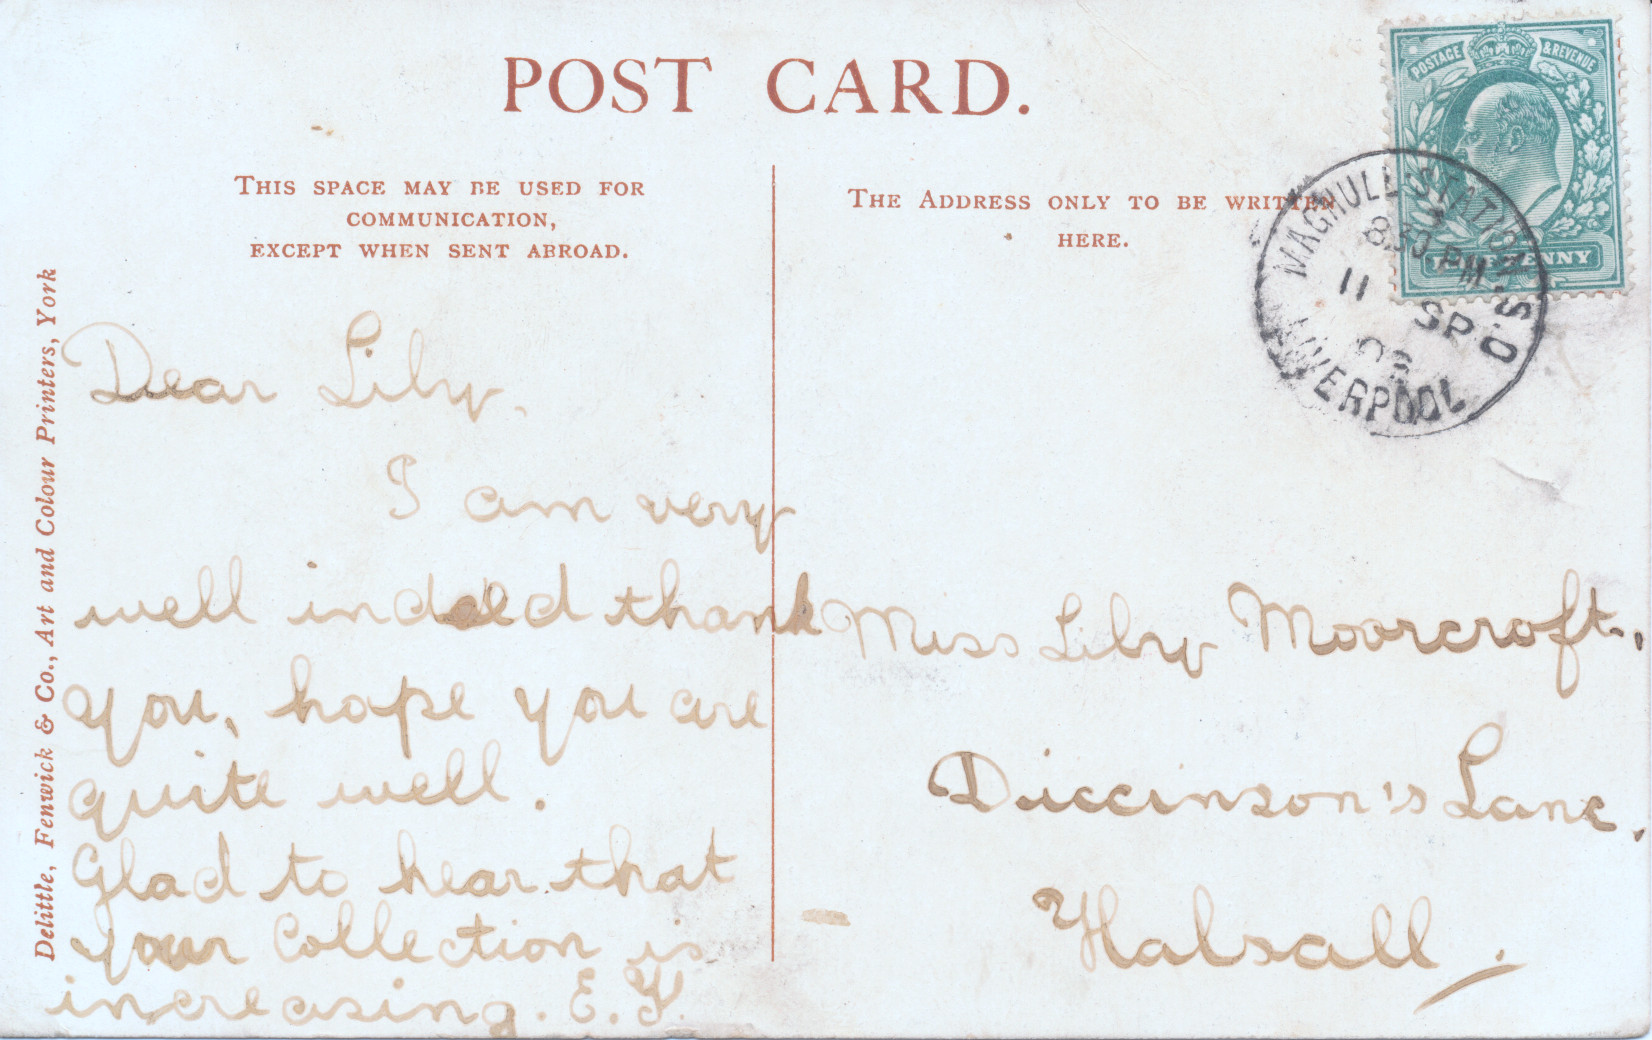 POST CARD.
THIS SPACE MAY BE USED FOR
COMMUNICATION,
EXCEPT WHEN SENT ABROAD.
THE ADDRESS ONLY TO BE WRITTEN
HERE.
POSTAGE & REVENUE
HALFPENNY
MAGHULL STATION S.O
8.30 PM
11 SP
LIVERPOOL
Delittle, Fenwick & Co., Art and Colour Printers, York
Dear Lily,
I am very
well indeed thank
you, hope you are
quite well.
Glad to hear that
your Collection is
increasing. E. Y.
Miss Lily Moorcroft,
Diccinson's Lane,
Halsall.